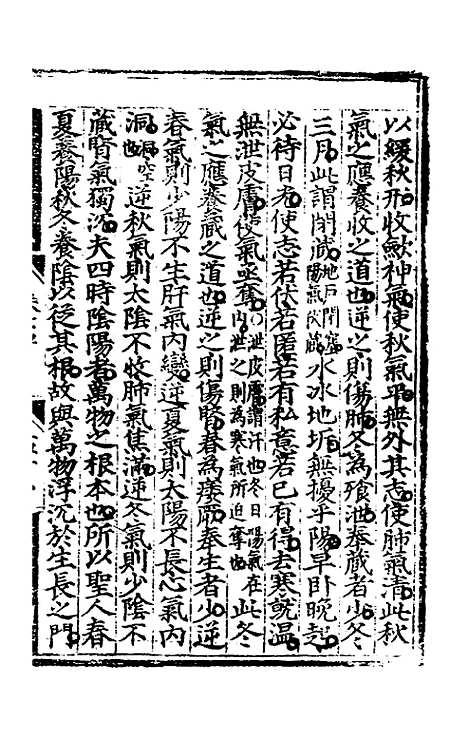 以緩秋刑收斂神氣使秋氣平無外其志使肺氣清此秋
氣之應養收之道也逆之則傷肺冬為飱泄奉藏者少冬
三月此謂閉藏地戶閉塞陽氣伏藏水冰地坼無擾乎陽早卧晚起
必待日光使志若伏若匿若有私意若已有得去寒就温
無泄皮膚使氣亟奪〇泄皮膚謂汗也冬日陽氣在內泄之則為寒氣所迫奪也此冬
氣之應養藏之道也逆之則傷腎春為痿厥奉生者少逆
春氣則少陽不生肝氣內變逆夏氣則太陽不長心氣內
洞洞空也逆秋氣則太陰不收肺氣焦滿逆冬氣則少陰不
藏腎氣獨沉夫四時陰陽者萬物之根本也所以聖人春
夏養陽秋冬養陰以從其根故與萬物浮沉於生長之門